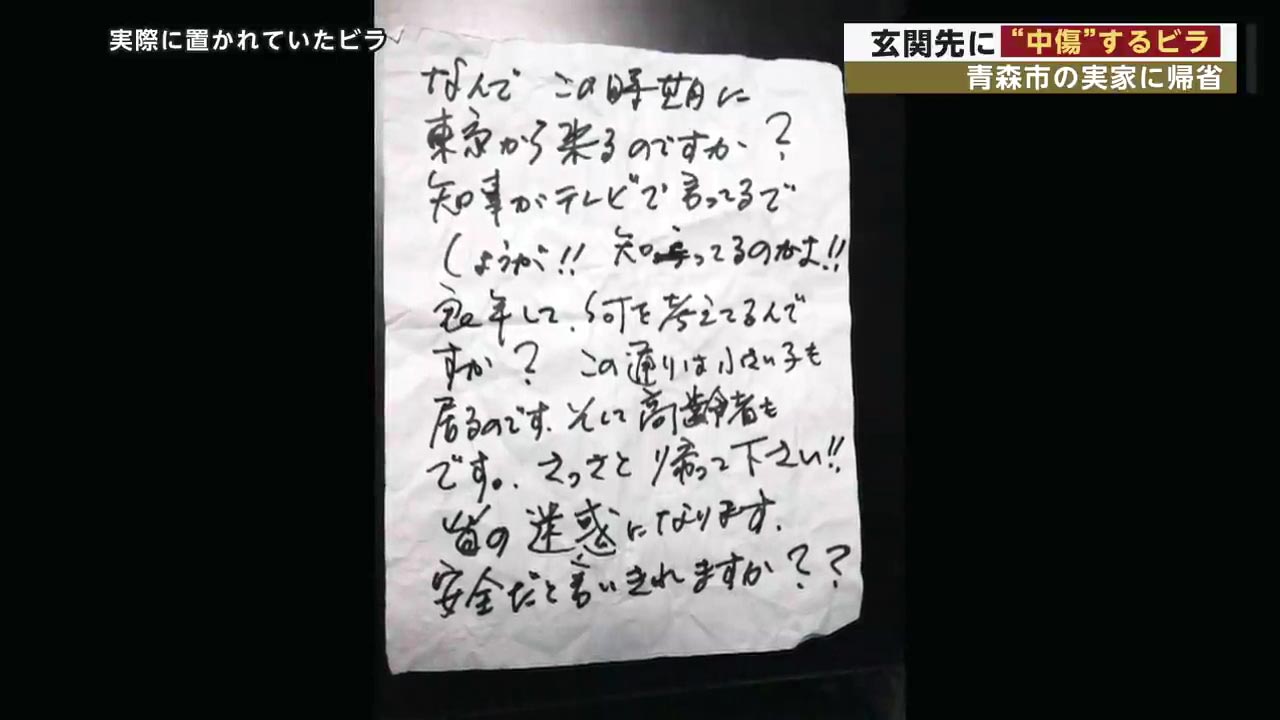 実際に置かれていたビラ
玄関先に“中傷”するビラ
青森市の実家に帰省
なんで この時期に
東京から来るのですか?
知事がテレビで言ってるで
しょうが!! 知ってるのかよ!!
良い年して、何を考えてるんで
すか? この通りは小さい子も
居るのです、そして高齢者も
です。さっさと帰って下さい!!
皆の迷惑になります。
安全だと言いきれますか??